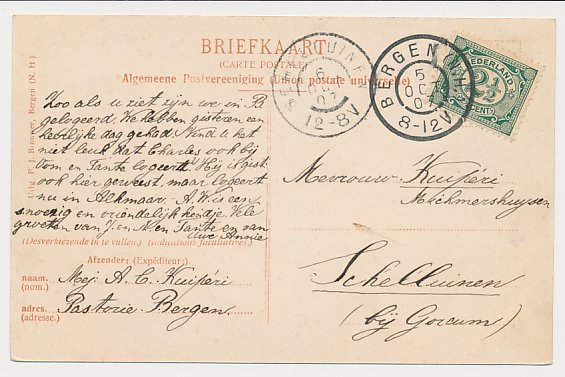 BRIEFKAART
(CARTE POSTALE)
Algemeene Postvereeniging (Union postale universelle)
BERGEN (N.H.)
5 OCT 07
8-12V
6 OCT 07
12-8V
NEDERLAND
2½
CENT
Uitg. P. J. Bergen (N. H.)
Zoo als u ziet zijn we in B.
gelogeerd. We hebben gisteren een
heerlijke dag gehad. Vind u het
niet leuk dat Charles ook bij
Oom en Tante logeert. Hij is gist.
ook hier geweest, maar logeert
nu in Alkmaar. A. W. is een
snoezig en vriendelijk hondje. Vele
groeten van J. en M. en Tante en van
Uwe Annie
(Desverkiezende in te vullen.) (Indications facultatives.)
Afzender: (Expéditeur:)
naam. Mej. A. C. Kuipéri
(nom.)
adres. Pastorie Bergen.
(adresse.)
Mevrouw Kuipéri
Schelluinen
(bij Gorcum)